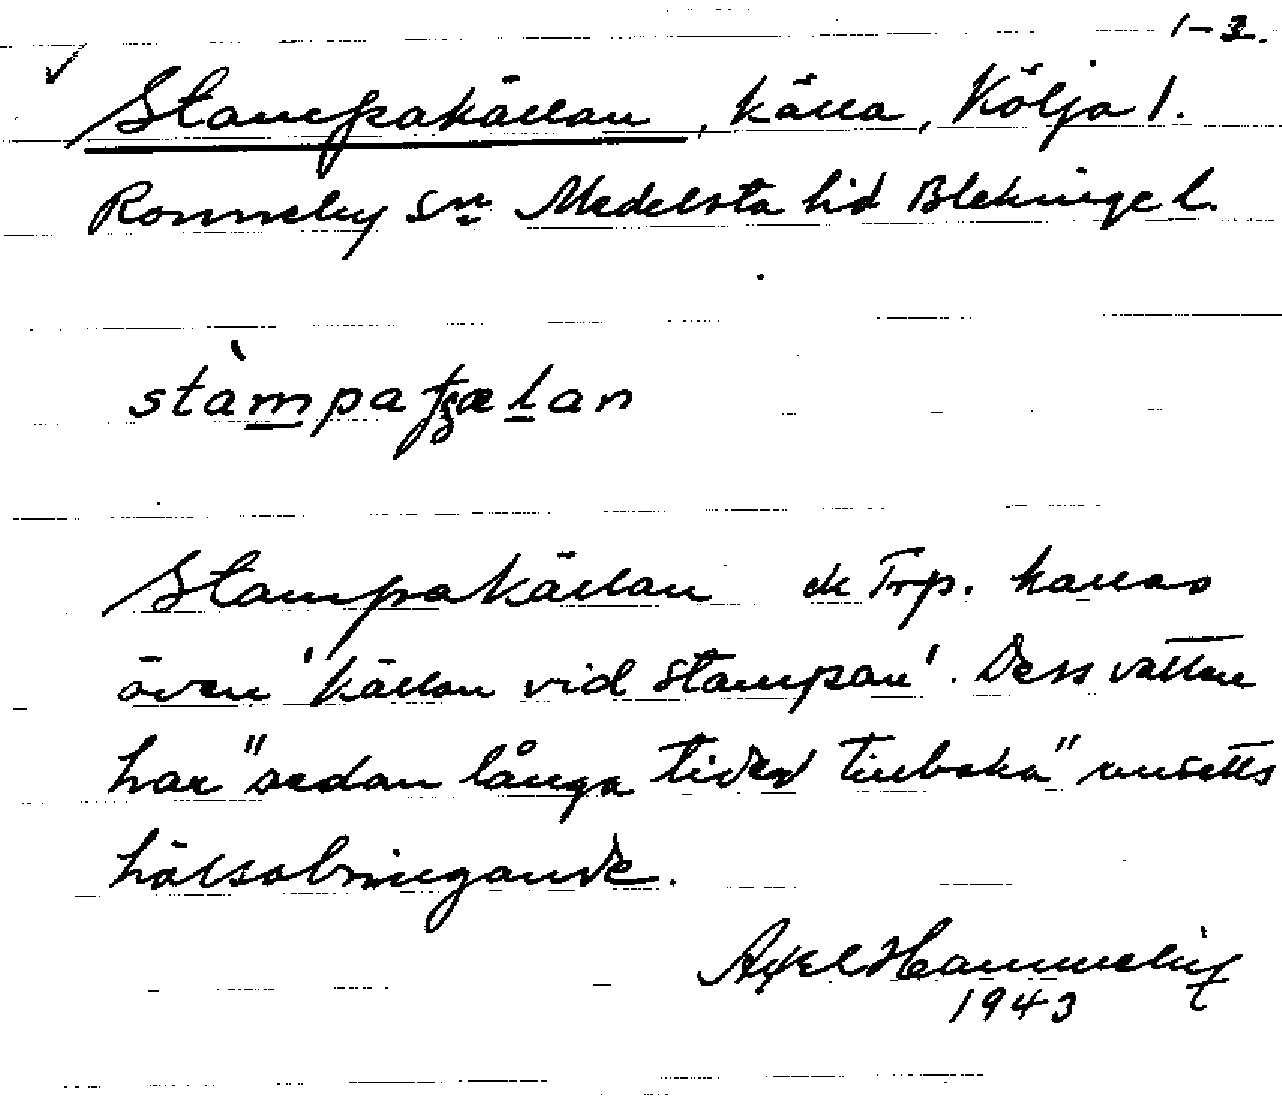 1-3.
Stampakällan, källa, Kölja 1.
Ronneby sn Medelsta hd Blekinge l.
stàmpatʒælan
Stampakällan ek Trp. kallas
även 'källan vid stampan'. Dess vatten
har "sedan långa tider tillbaka" ansetts
hälsobringande.
Axel
1943